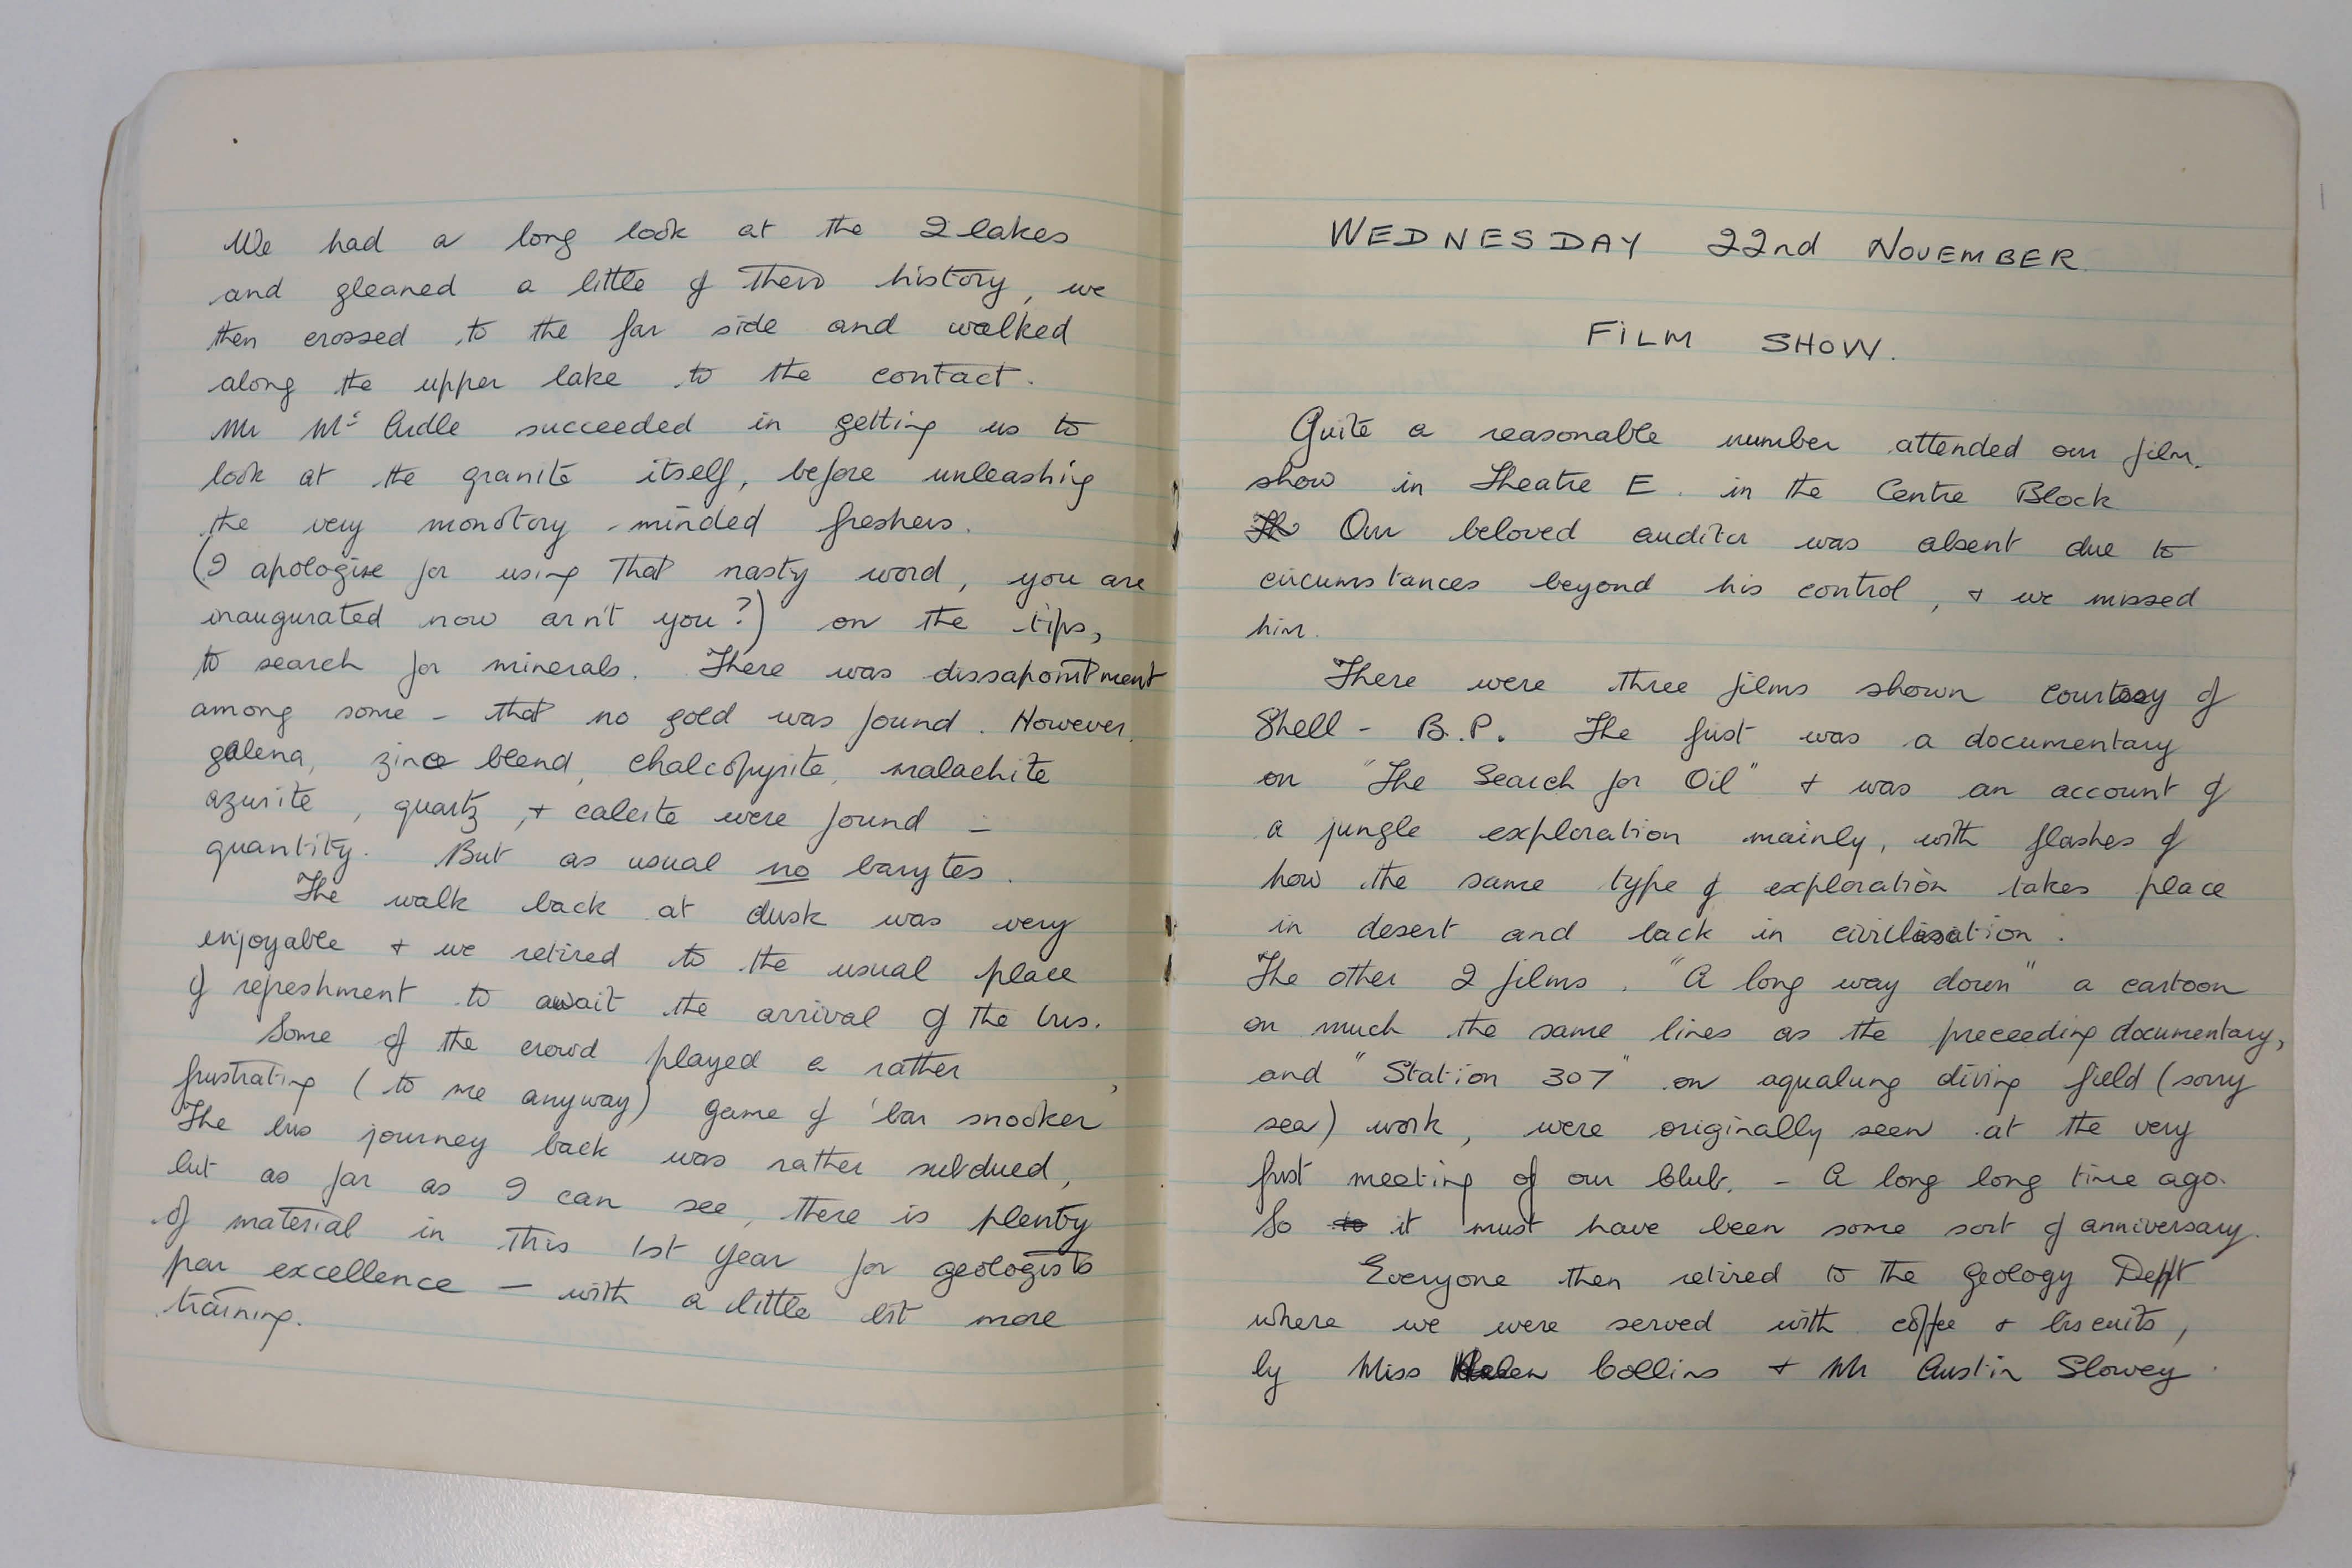 We had a long look at the 2 lakes
and gleaned a little of their history, we
then crossed to the far side and walked
along the upper lake to the contact.
Mr Mc Ardle succeeded in getting us to
look at the granite itself, before unleashing
the very monotory-minded freshers.
(I apologise for using that nasty word, you are
inaugurated now arn't you?) on the tips,
to search for minerals. There was dissapointment
among some - that no gold was found. However,
galena, zinc blend, chalcopyrite, malachite
azurite, quartz, + calcite were found -
quantity. But as usual no barytes.
The walk back at dusk was very
enjoyable + we retired to the usual place
of refreshment to await the arrival of the bus.
Some of the crowd played a rather
frustrating (to me anyway) game of 'bar snooker'
The bus journey back was rather subdued,
but as far as I can see, there is plenty
of material in this 1st Year for geologists
par excellence - with a little bit more
training.
WEDNESDAY 22nd NOVEMBER.
FILM SHOW.
Quite a reasonable number attended our film.
show in Theatre E. in the Centre Block
Our beloved auditor was absent due to
circumstances beyond his control, + we missed
him.
There were three films shown courtesy of
Shell - B.P. The first was a documentary
on "The Search for Oil" + was an account of
a jungle exploration mainly, with flashes of
how the same type of exploration takes place
in desert and back in civilisation.
The other 2 films. "A long way down" a cartoon
on much the same lines as the preceeding documentary,
and "Station 307" on aqualung diving field (sorry
sea) work, were originally seen at the very
first meeting of our Club. - A long long time ago.
So it must have been some sort of anniversary.
Everyone then retired to the Geology Deptt
where we were served with coffee + biscuits,
by Miss Helen Collins + Mr Austin Slowey.